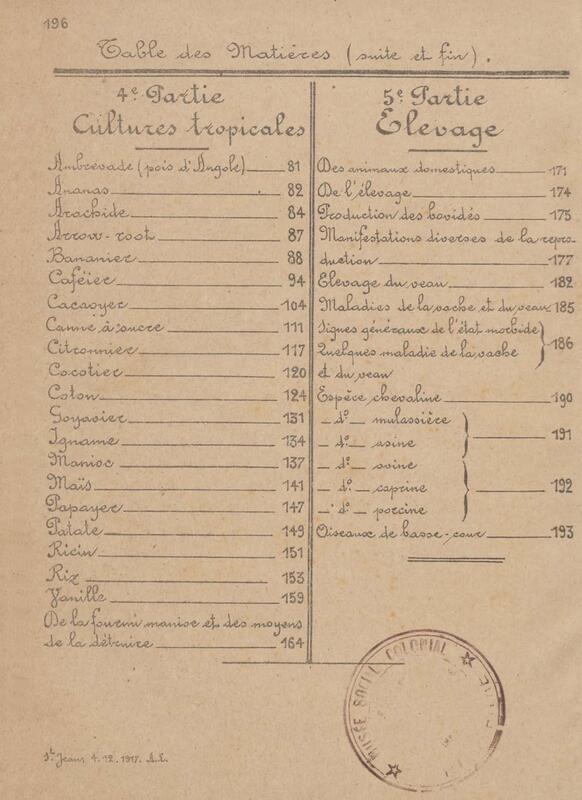 196
Table des Matières (suite et fin).
4e Partie
Cultures tropicales
Ambrevade (pois d'Angole) 81
Ananas 82
Arachide 84
Arrow-root 87
Bananier 88
Caféier 94
Cacaoyer 104
Canne à sucre 111
Citronnier 117
Cocotier 120
Coton 124
Goyavier 131
Igname 134
Manioc 137
Maïs 141
Papayer 147
Patate 149
Ricin 151
Riz 153
Vanille 159
De la fourmi manioc et des moyens
de la détruire 164
5e Partie
Elevage
Des animaux domestiques 171
De l'élevage 174
Production des bovidés 175
Manifestations diverses de la repro-
duction 177
Elevage du veau 182
Maladies de la vache et du veau 185
Signes généraux de l'état morbide
Quelques maladie de la vache 186
et du veau
Espèce chevaline 190
_ do _ mulassière
_ do _ asine 191
_ do _ ovine
_ do _ caprine 192
_ do _ porcine
Oiseaux de basse-cour 193
MUSÉE SOCIAL COLONIAL
St Jean 4.12.1917.